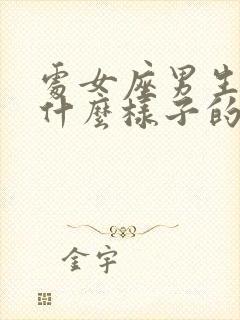 處女座男生
什麼樣子的
金宇